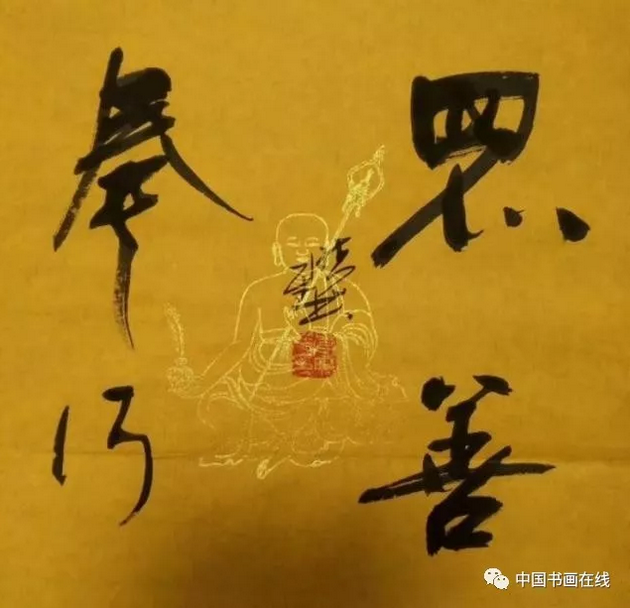 眾善
奉行
中国书画在线